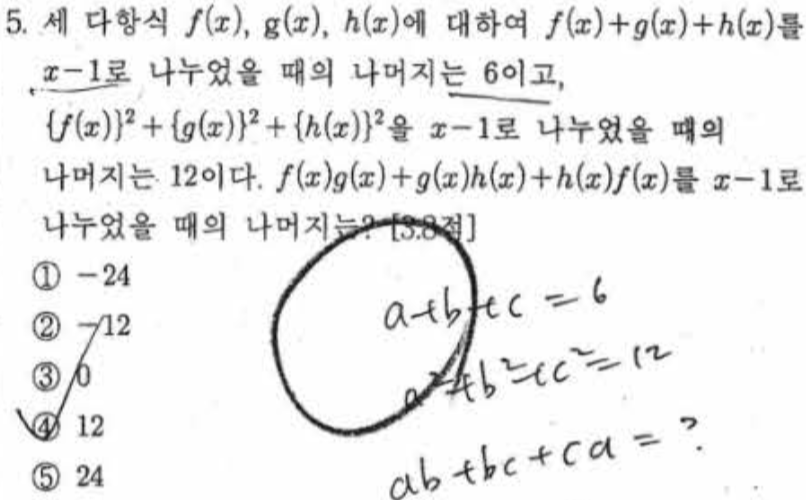 5. 세 다항식 f(x), g(x), h(x)에 대하여 f(x)+g(x)+h(x)를
x-1로 나누었을 때의 나머지는 6이고,
{f(x)}²+{g(x)}²+{h(x)}²을 x-1로 나누었을 때의
나머지는 12이다. f(x)g(x)+g(x)h(x)+h(x)f(x)를 x-1로
나누었을 때의 나머지는? [3.8점]
① -24
② -12
③ 0
④ 12
⑤ 24
a+b+c=6
a²+b²+c²=12
ab+bc+ca=?